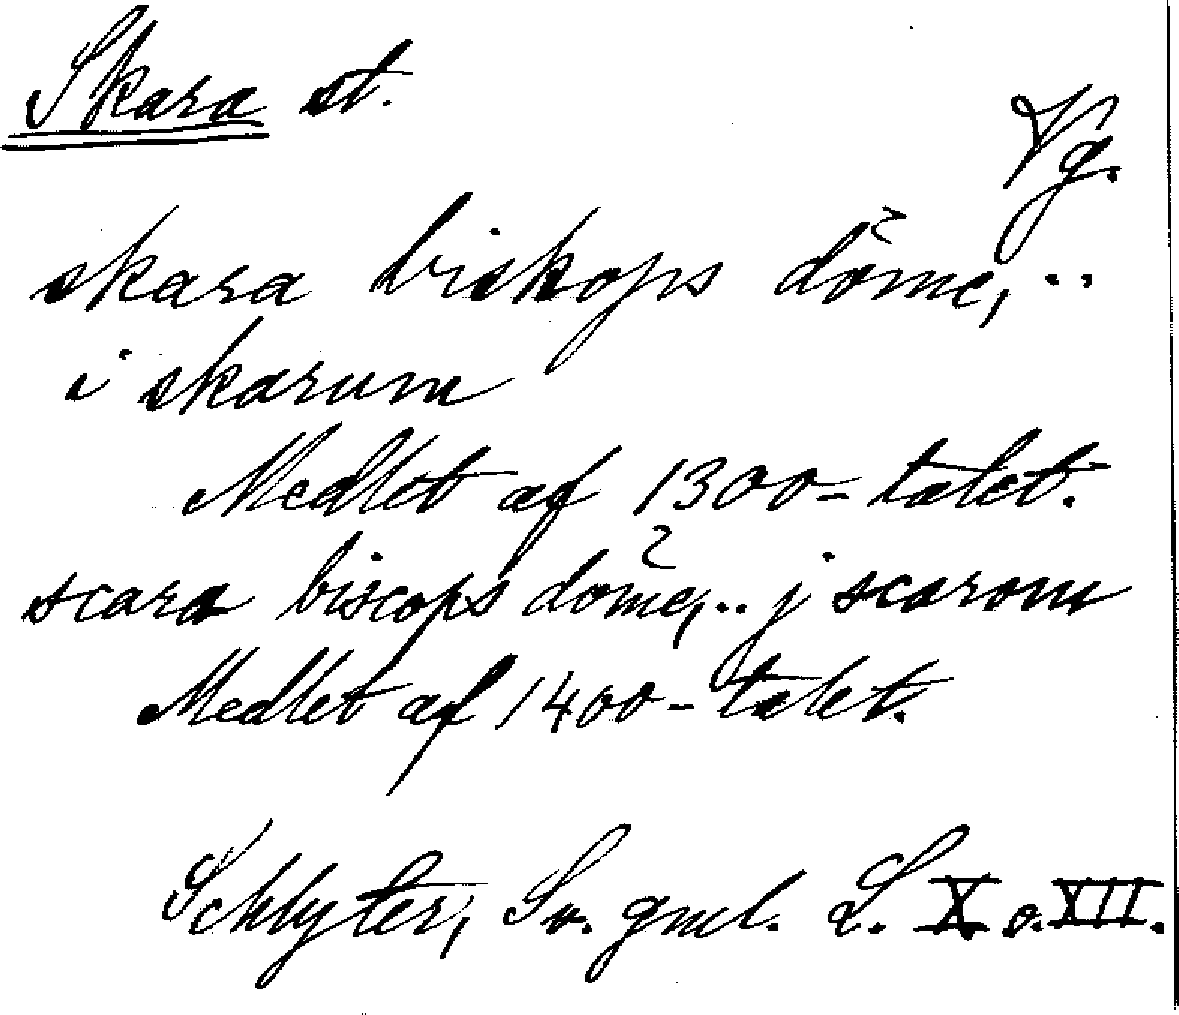 Skara st.
Vg.
skara biskops döme, ..
i skarum
Medlet af 1300-talet.
scara biscops döme, .. j scarom
Medlet af 1400-talet.
Schlyter, Sv. gml. L. X o. XII.